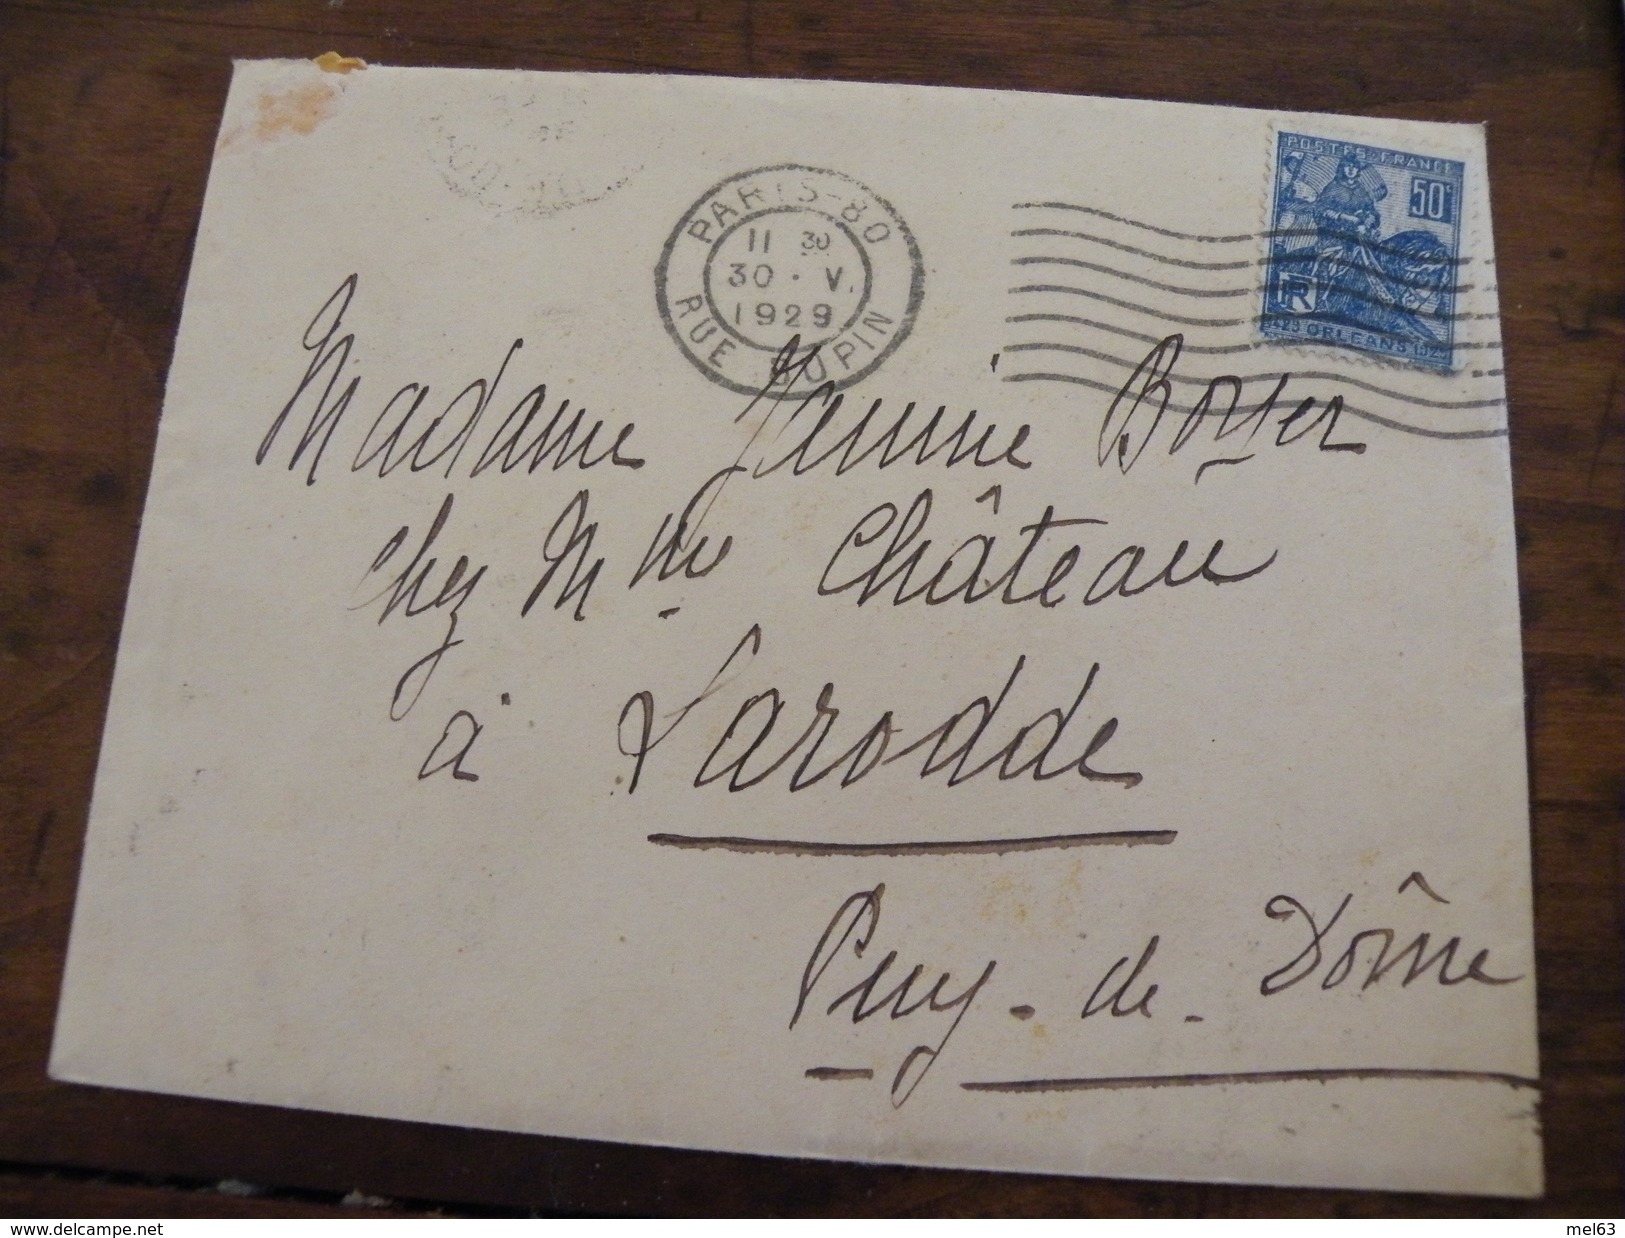 POSTES FRANCE
50c
RF
ORLEANS 1929
PARIS-80
11 30
30 · V.
1929
RUE DUPIN
Madame Jannie Boyer
chez Mme Château
à Larodde
Puy-de-Dôme
delcampe.net
mel63